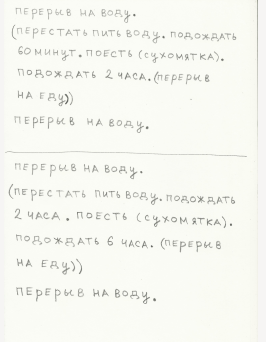 ПЕРЕРЫВ НА ВОДУ.
(ПЕРЕСТАТЬ ПИТЬ ВОДУ. ПОДОЖДАТЬ
60 МИНУТ. ПОЕСТЬ (СУХОМЯТКА).
ПОДОЖДАТЬ 2 ЧАСА. (ПЕРЕРЫВ
НА ЕДУ))
ПЕРЕРЫВ НА ВОДУ.
ПЕРЕРЫВ НА ВОДУ.
(ПЕРЕСТАТЬ ПИТЬ ВОДУ. ПОДОЖДАТЬ
2 ЧАСА. ПОЕСТЬ (СУХОМЯТКА).
ПОДОЖДАТЬ 6 ЧАСА. (ПЕРЕРЫВ
НА ЕДУ))
ПЕРЕРЫВ НА ВОДУ.